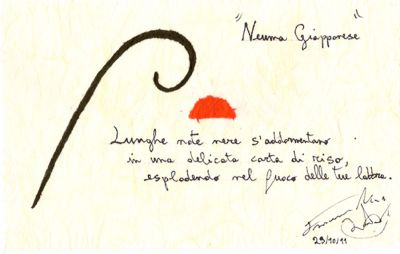 "Neuma Giapponese"
Lunghe note nere s'addormentano
in una delicata carta di riso,
esplodendo nel fuoco delle tue labbra.
23/10/11